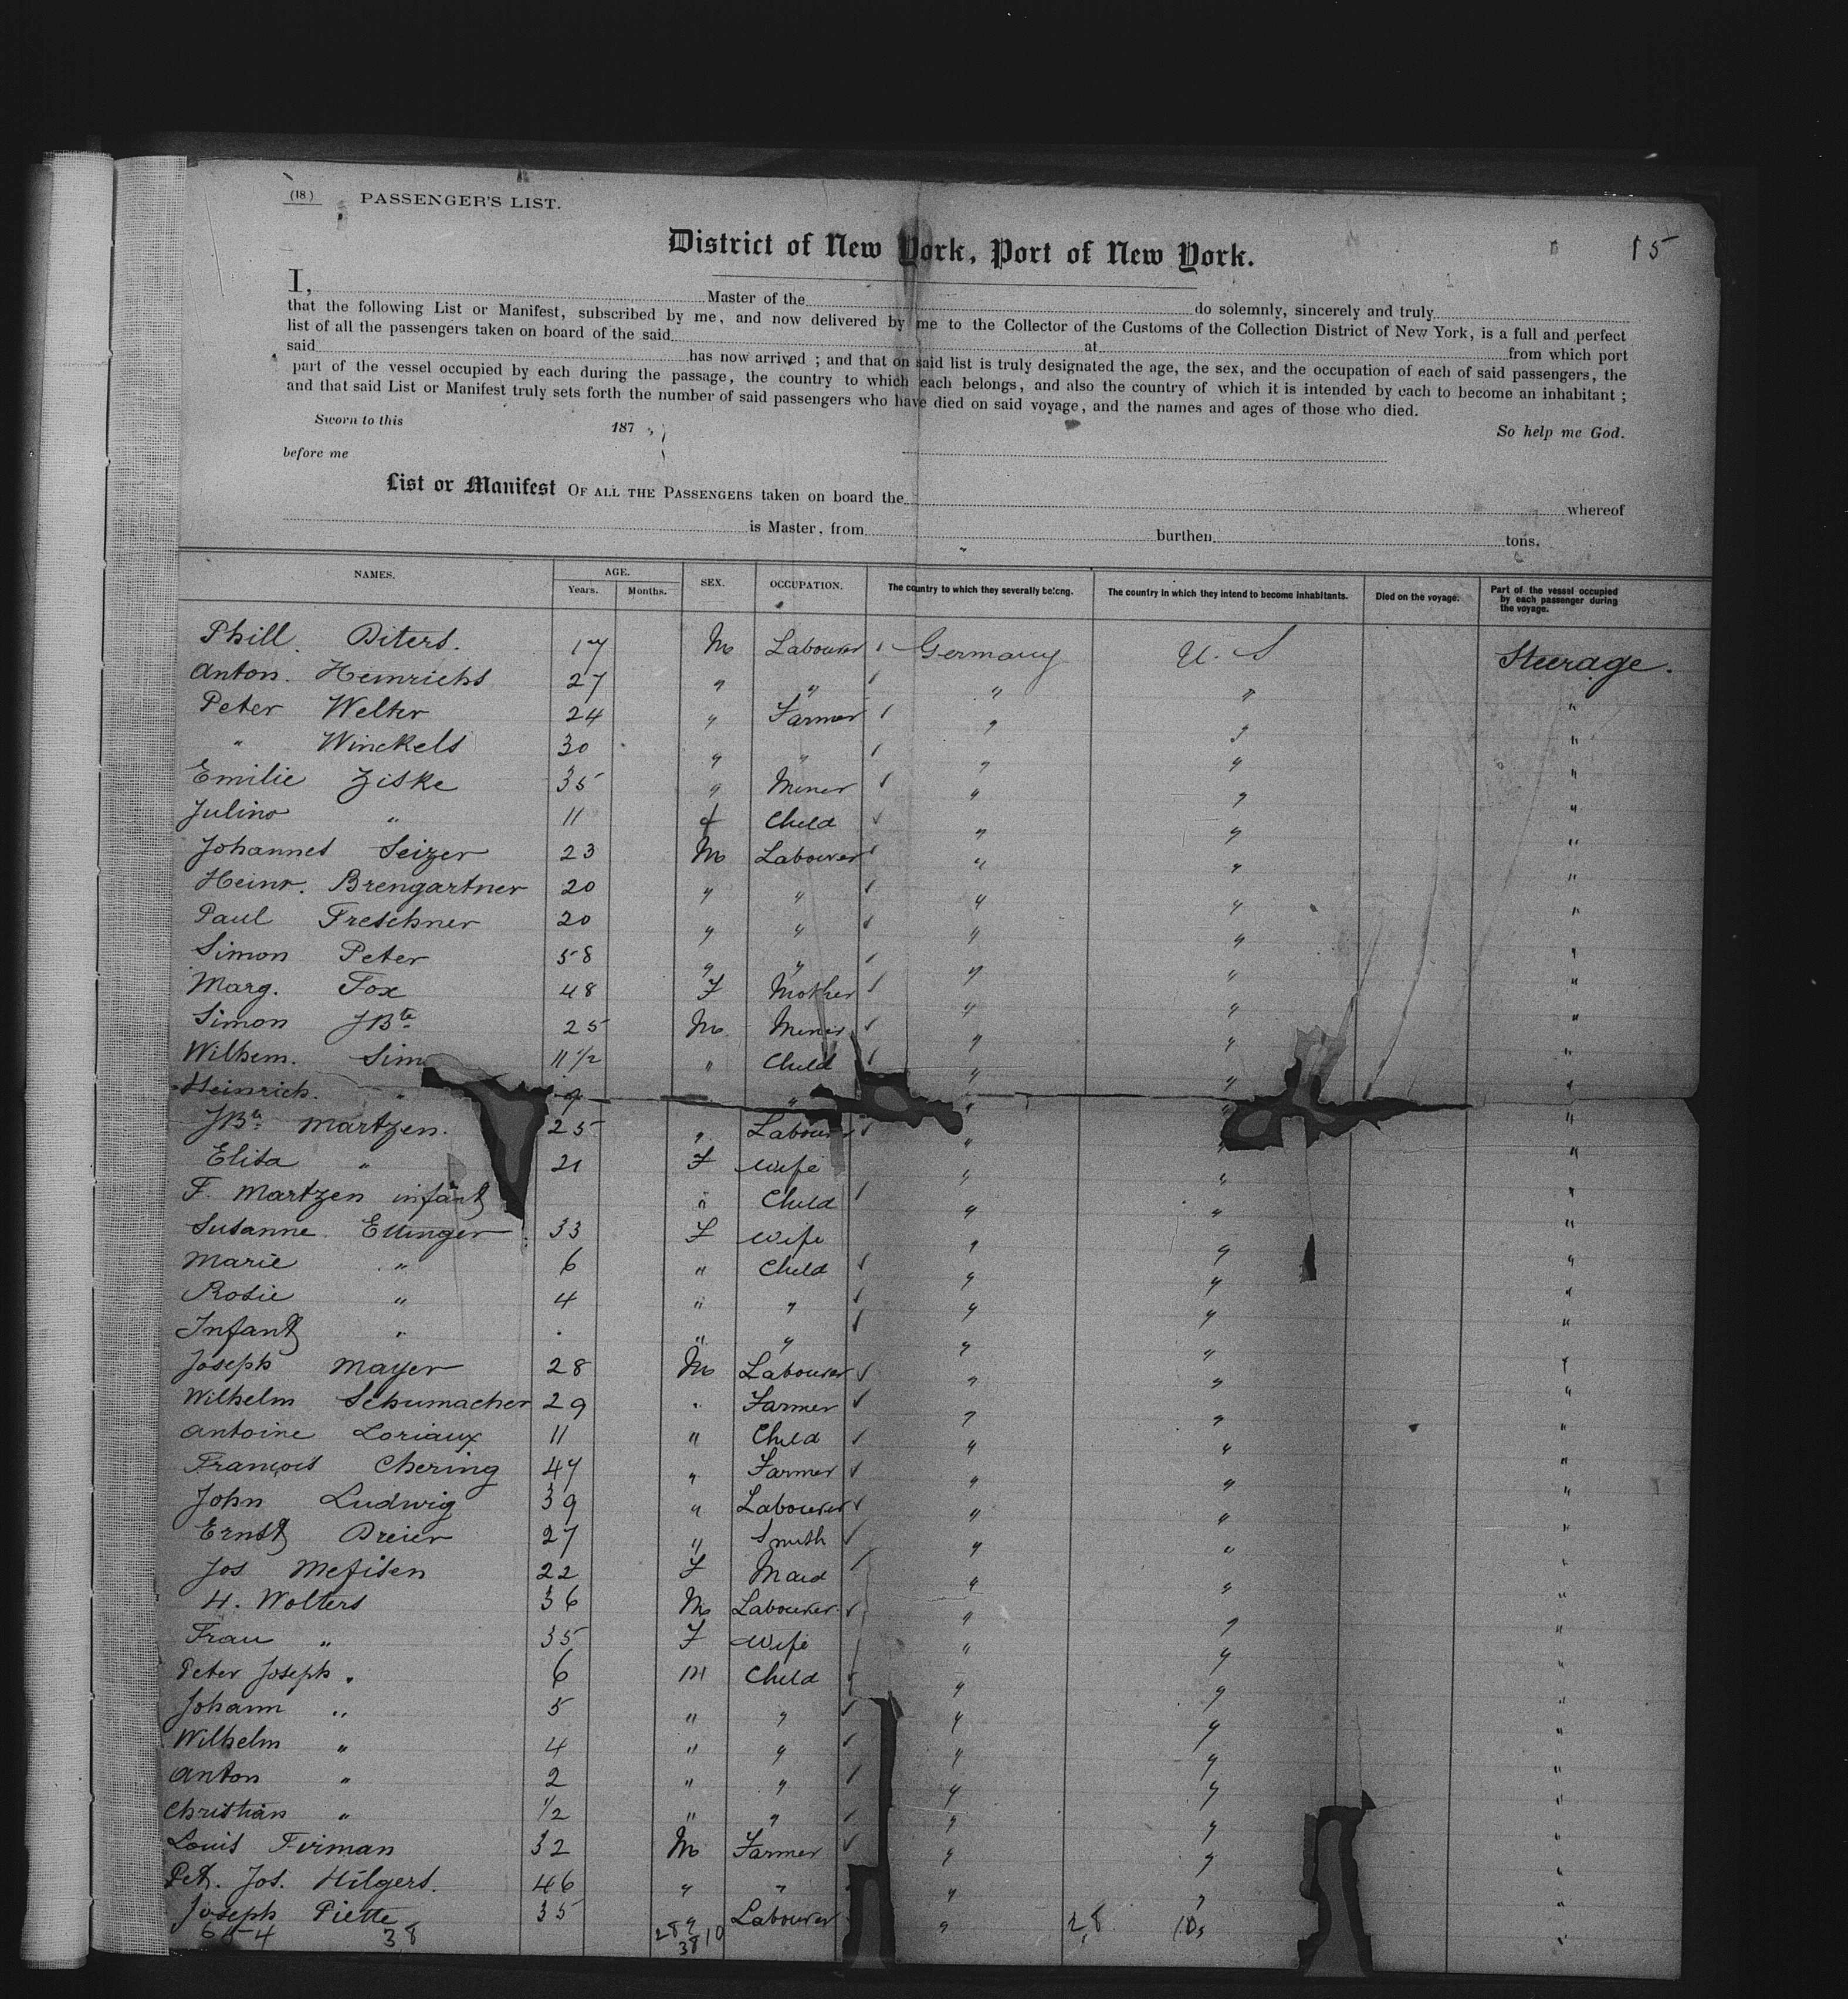 (18) PASSENGER'S LIST.
15
District of New York, Port of New York.
I, Master of the do solemnly, sincerely and truly
that the following List or Manifest, subscribed by me, and now delivered by me to the Collector of the Customs of the Collection District of New York, is a full and perfect
list of all the passengers taken on board of the said at from which port
said has now arrived ; and that on said list is truly designated the age, the sex, and the occupation of each of said passengers, the
part of the vessel occupied by each during the passage, the country to which each belongs, and also the country of which it is intended by each to become an inhabitant ;
and that said List or Manifest truly sets forth the number of said passengers who have died on said voyage, and the names and ages of those who died.
Sworn to this 187 So help me God.
before me
List or Manifest OF ALL THE PASSENGERS taken on board the whereof
is Master, from burthen tons.
NAMES. AGE. Years. Months. SEX. OCCUPATION. The country to which they severally belong. The country in which they intend to become inhabitants. Died on the voyage. Part of the vessel occupied by each passenger during the voyage.
Phill. Diters. 17 M Labourer Germany U. S Steerage.
Anton. Heinrichs 27 " " " " "
Peter Welter 24 " Farmer " " "
" Winckels 30 " " " " "
Emilie Ziske 35 " Miner " " "
Julino " 11 f Child " " "
Johannes Seizer 23 M Labourer " " "
Heinr. Brengartner 20 " " " " "
Paul Freschner 20 " " " " "
Simon Peter 58 " " " " "
Marg. Fox 48 F Mother " " "
Simon JBte 25 M Miner " " "
Wilhem. Sim 11 1/2 " Child " " "
Heinrich. " 9 " " " "
JBte Martzen. 25 " Labourer " " "
Elisa " 21 F Wife " " "
F. Martzen infant " Child " " "
Susanne Ettinger 33 F Wife " " "
Marie " 6 " Child " " "
Rosie " 4 " " " " "
Infant " " " " " "
Joseph Mayer 28 M Labourer " " "
Wilhelm Schumacher 29 " Farmer " " "
Antoine Loriaux 11 " Child " " "
François Chering 47 " Farmer " " "
John Ludwig 39 " Labourer " " "
Ernst Dreier 27 " Smith " " "
Jos Mefisen 22 F Maid " " "
H. Wolters 36 M Labourer " " "
Frau " 35 F Wife " " "
Peter Joseph " 6 M Child " " "
Johann " 5 " " " " "
Wilhelm " 4 " " " " "
Anton " 2 " " " " "
Christian " 1/2 " " " " "
Louis Firman 32 M Farmer " " "
Pet. Jos. Hilgers. 46 " " " " "
Joseph Piette 35 " Labourer " " "
38 28 10 38 28 10